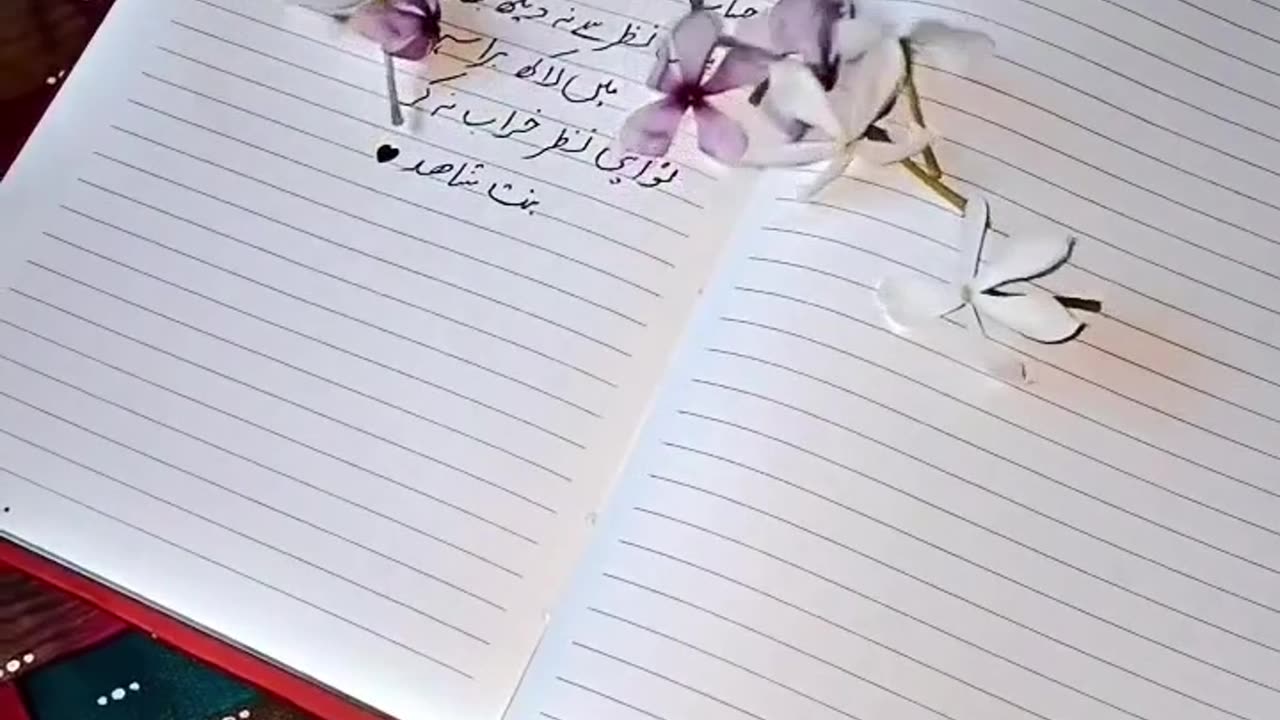 نظر سے نہ دیکھ
میں لاکھ برا سہی
تو اپنی نظر خراب نہ کر
بنت شاھد ♥